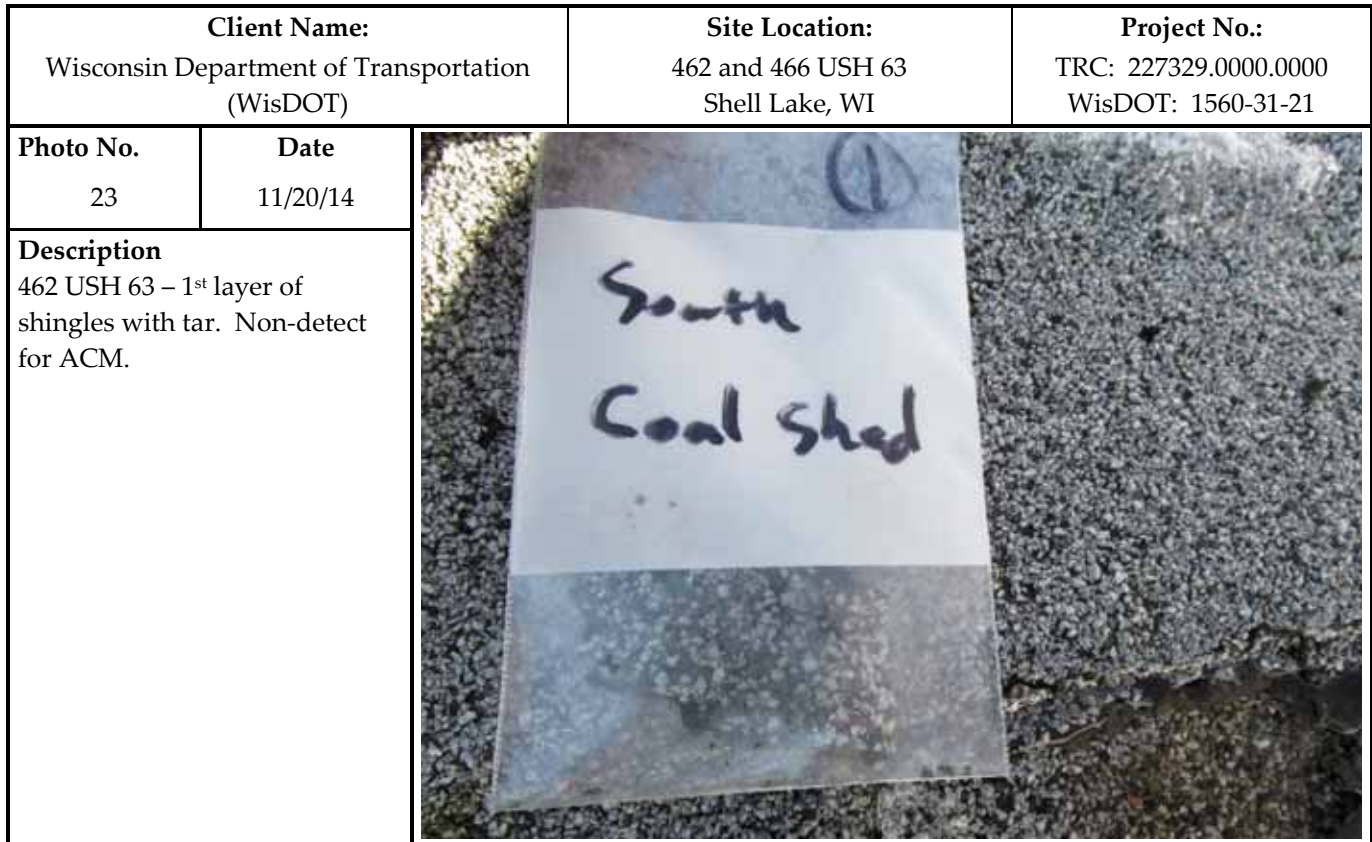 Client Name:
Wisconsin Department of Transportation
(WisDOT)
Site Location:
462 and 466 USH 63
Shell Lake, WI
Project No.:
TRC: 227329.0000.0000
WisDOT: 1560-31-21
Photo No.
23
Date
11/20/14
Description
462 USH 63 – 1st layer of
shingles with tar. Non-detect
for ACM.
1
South
Coal Shed